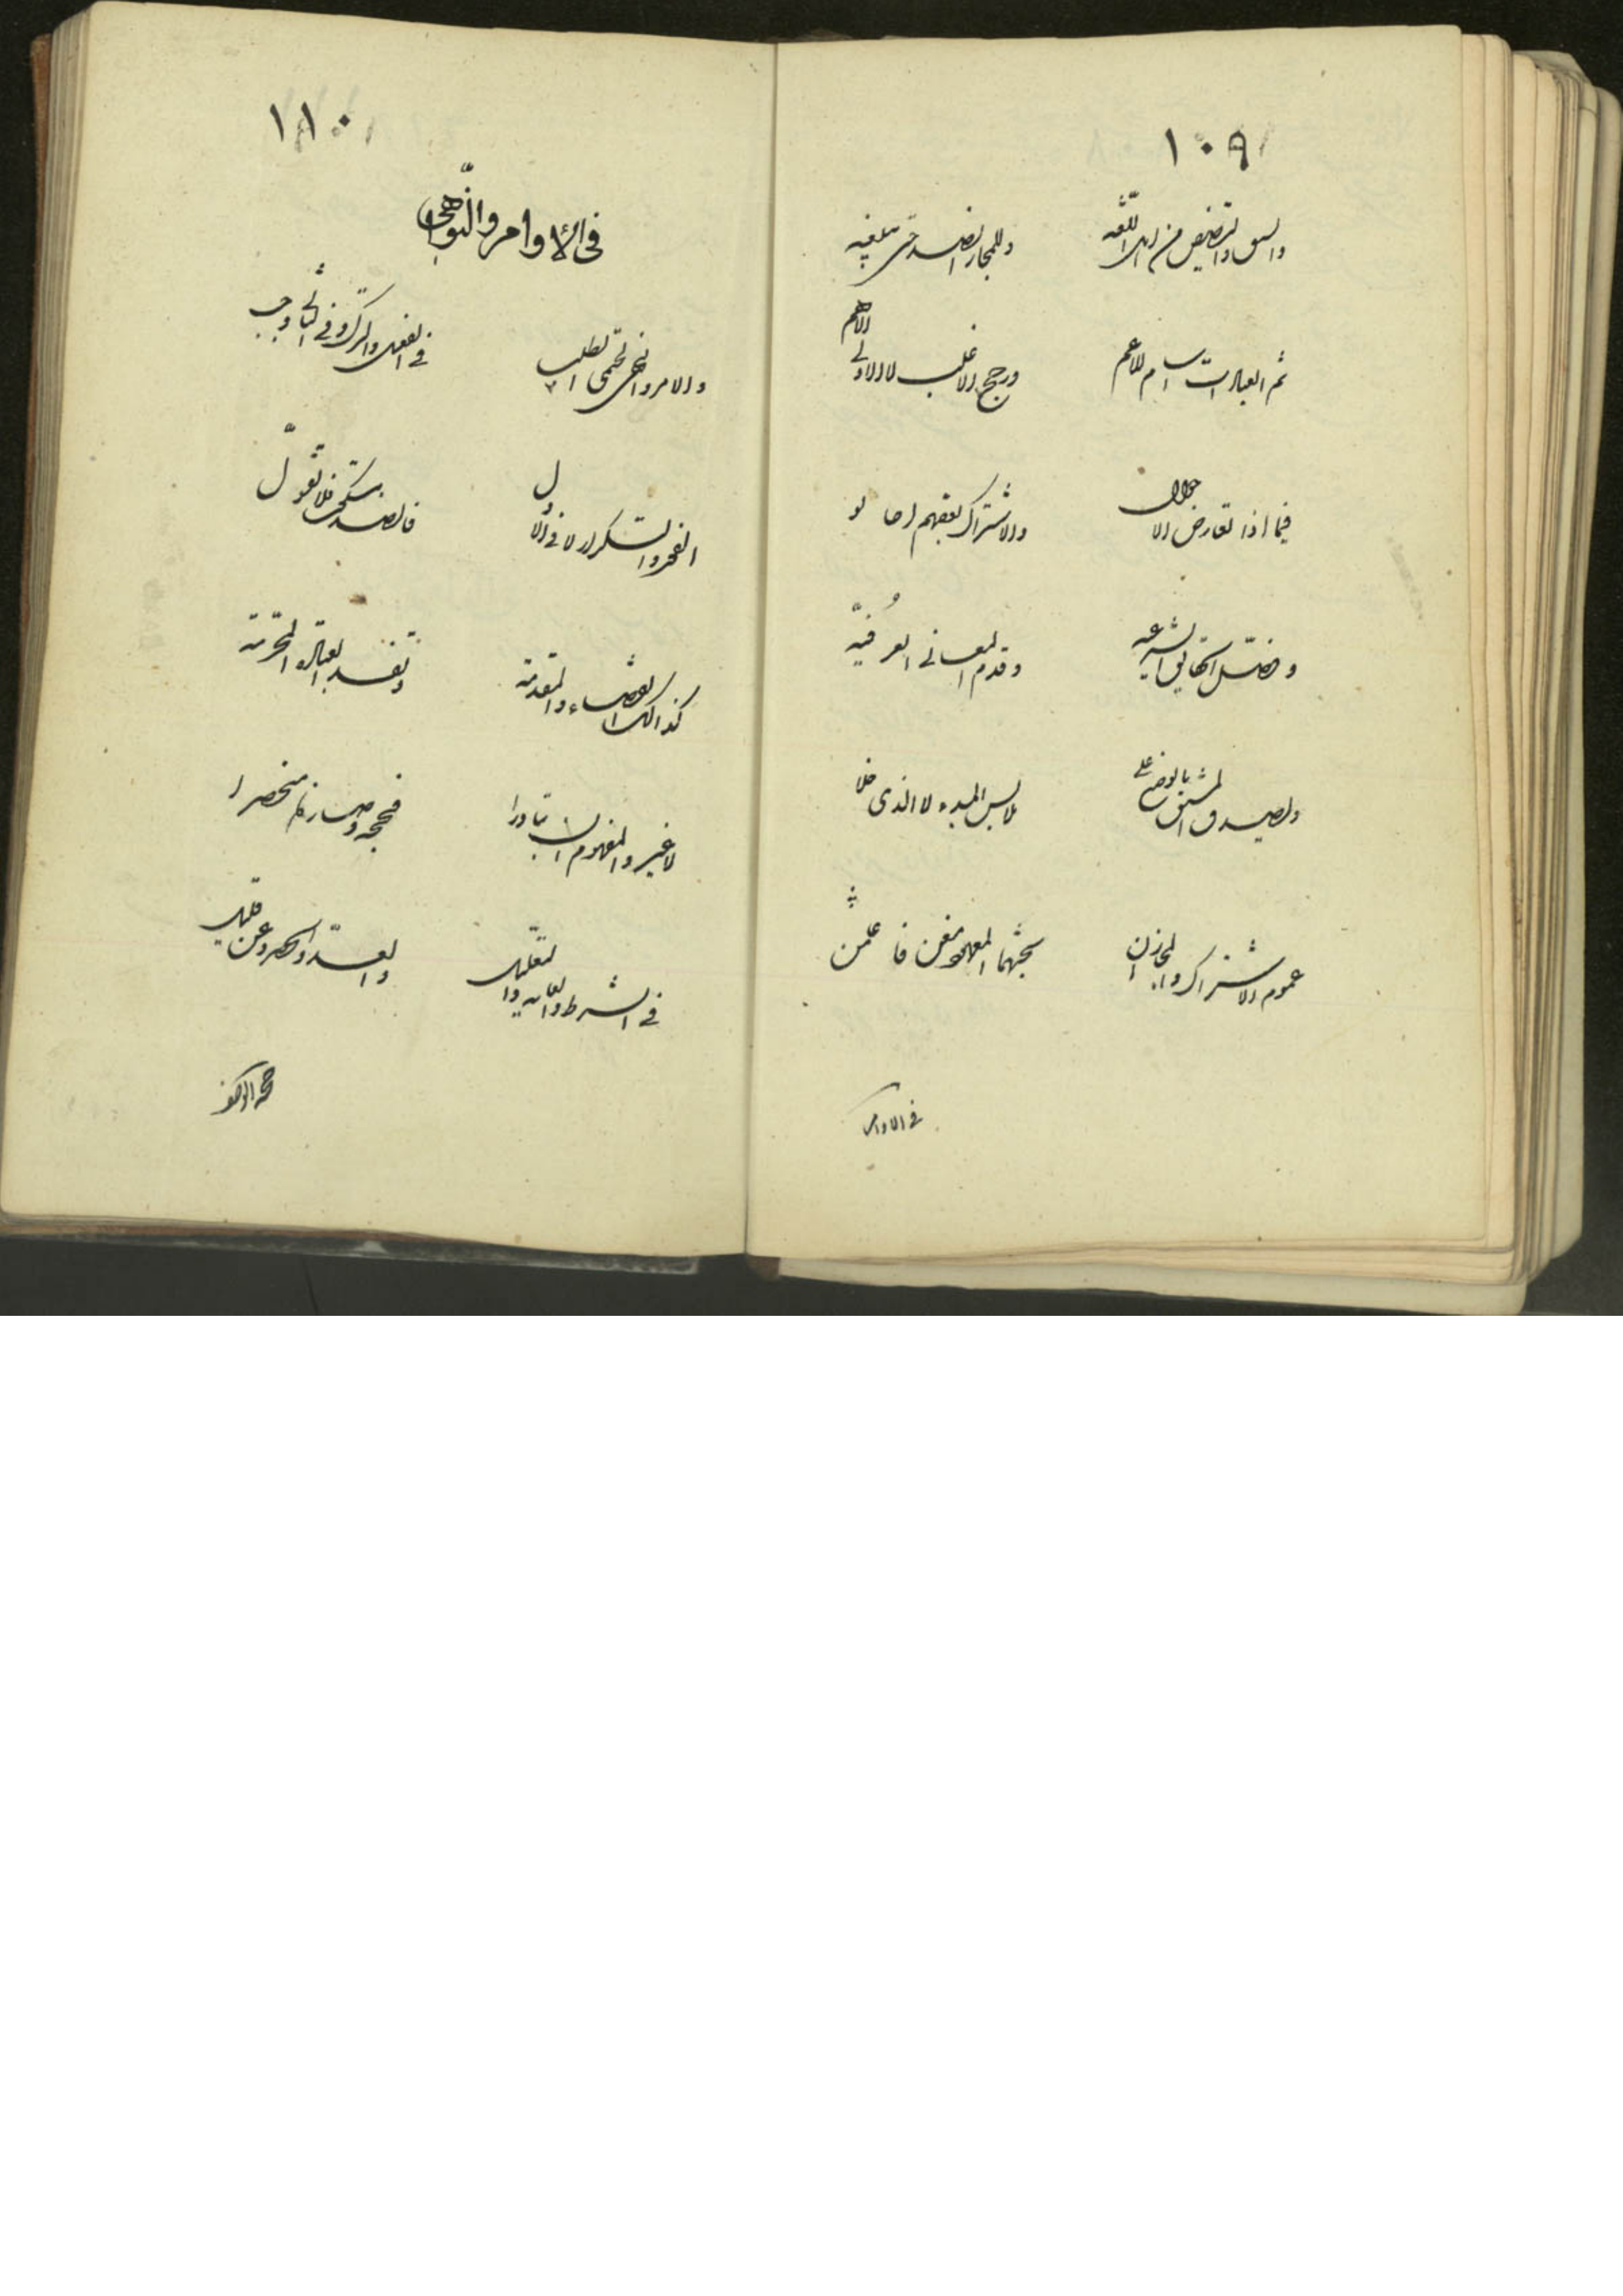 ١٠٩
والسبق والتنصيص من اهل اللغه وللمجاز الضد حتى تلغيه
ثم العبارات اسام للاعم ورجح الاغلب لا الاولى الاهم
فيما اذا تعارض الاحوال والاشتراك بعضهم احالوا
وفضل الحقايق الشرعيه وقدم المعانى العرفيّه
وليصدق المشتق بالوضع على ملابس المبدء لا الذى خلا
عموم الاشتراك والمجاز ان بحثهما المعهود فاعلمن
فى الاوامر
١١٠
فى الاوامر والنّواهى
والامر والنهى لحتمى الطلب فى الفعل والترك وفى الثانى وجب
الفور والتكرار لا فى الاول فالضد تسكت فلا تعول
كذالك القضاء والمقدمة وتفسد العبادة المحرمة
لا غير والمفهوم ان تبادرا فحجة وصار منحصرا
فى الشرط والغاية والتعليل والعدّ والحصر وعن قليل